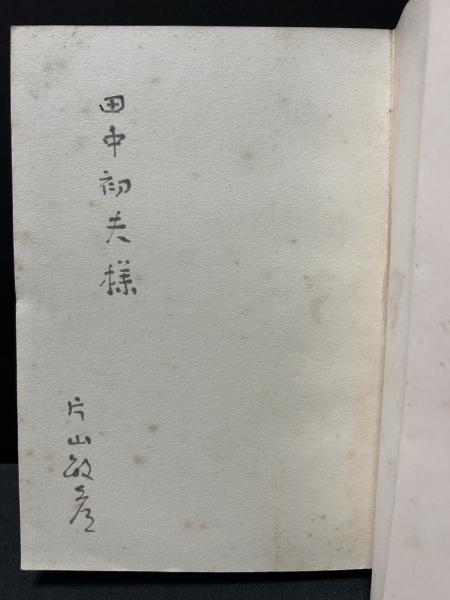 田中初夫様
片山敏彦